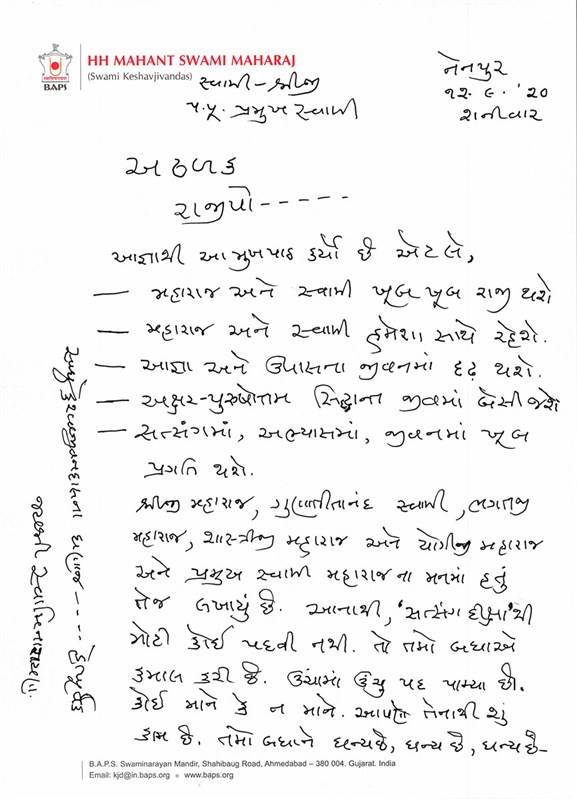 HH MAHANT SWAMI MAHARAJ
(Swami Keshavjivandas)
BAPS
સ્વામી-શ્રીજી
પ.પૂ. પ્રમુખ સ્વામી
નેનપુર
૧૨. ૯. '૨૦
શનીવાર
અઢળક
રાજીપો-----
આજ્ઞાથી આ મુખપાઠ કર્યો છે એટલે,
— મહારાજ અને સ્વામી ખૂબ ખૂબ રાજી થશે
— મહારાજ અને સ્વામી હમેશા સાથે રહેશે.
— આજ્ઞા અને ઉપાસના જીવનમાં દૃઢ થશે.
— અક્ષર-પુરુષોત્તમ સિદ્ધાન્ત જીવમાં બેસી જશે
— સત્સંગમાં, અભ્યાસમાં, જીવનમાં ખૂબ
પ્રગતિ થશે.
શ્રીજી મહારાજ, ગુણાતીતાનંદ સ્વામી, ભગતજી
મહારાજ, શાસ્ત્રીજી મહારાજ અને યોગીજી મહારાજ
અને પ્રમુખ સ્વામી મહારાજના મનમાં હતું
તેજ લખાયું છે. આનાથી, 'સત્સંગ દીક્ષા'થી
મોટી કોઈ પદવી નથી. તો તમો બધાએ
કમાલ કરી છે. ઉંચામાં ઉંચુ પદ પામ્યા છો.
કોઈ માને કે ન માને. આપણે તેનાથી શું
કામ છે. તમો બધાને ધન્ય છે, ધન્ય છે, ધન્ય છે-
સાધુ કેશવજીવનદાસના ઘણાજ ---- હેતપૂર્વક
જયશ્રી સ્વામિનારાયણ.
B.A.P.S. Swaminarayan Mandir, Shahibaug Road, Ahmedabad – 380 004. Gujarat. India
Email: kjd@in.baps.org • www.baps.org